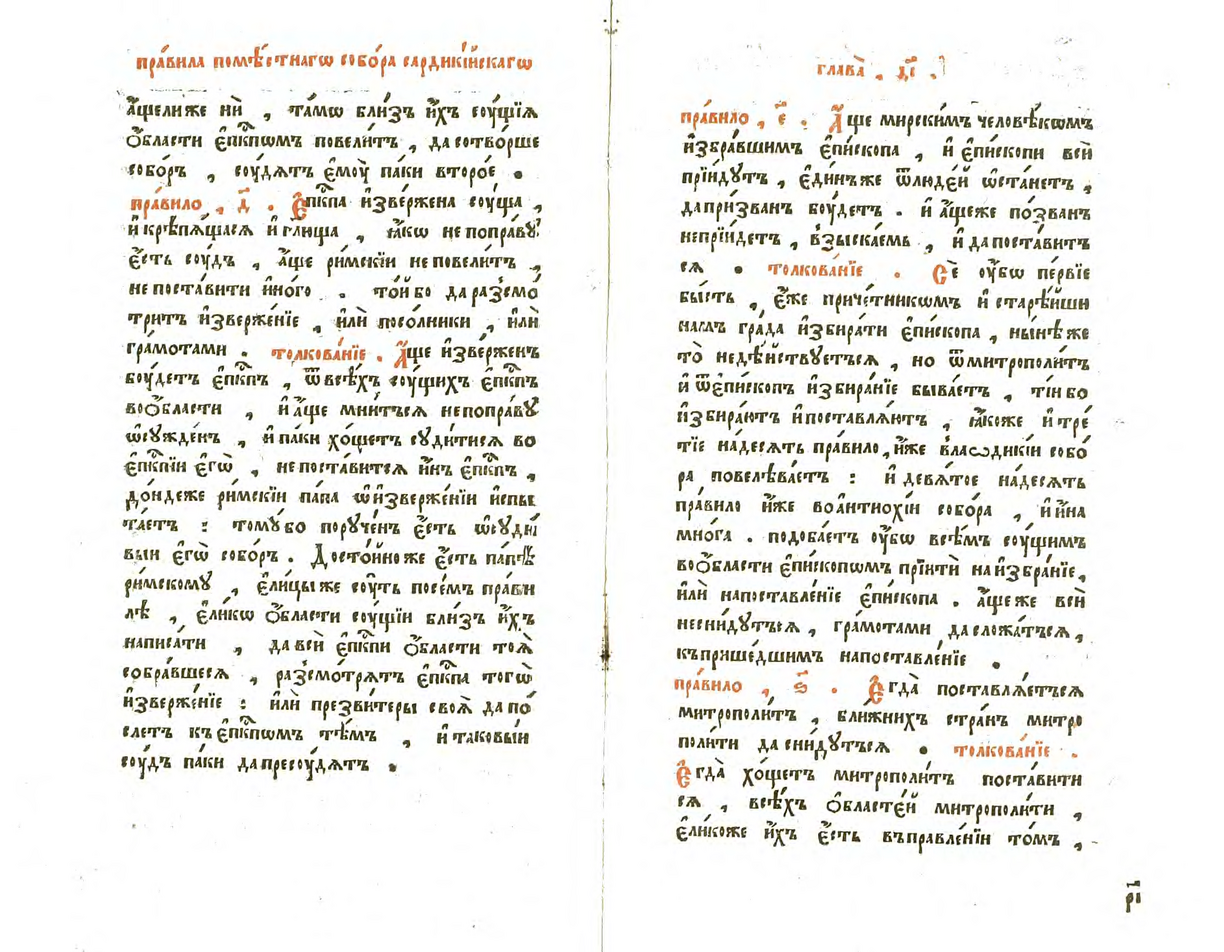 пра́вила помѣ́стнагѡ собо́ра сардикі́йскагѡ
а҆́щелиже нѝ , та́мѡ бли́зъ и҆́хъ сꙋ́щїѧ
ѻ҆́бласти є҆пкⷭ҇пѡмъ повели́тъ , да сотво́рше
собо́ръ , сꙋ́дѧтъ є҆мꙋ̀ па́ки второ́е .
пра́вило , д҃ . Є҆пкⷭ҇па и҆зве́ржена сꙋ́ща ,
и҆ крѣпѧ́щасѧ и҆ гл҃юща , ꙗ҆́кѡ не попра́вꙋ
є҆́сть сꙋ́дъ , а҆́ще ри́мскїи не повели́тъ ,
не поста́вити и҆но́го . то́й бо да разсмо́
тритъ и҆зверже́нїе , и҆лѝ посо́лники , и҆лѝ
гра́мотами . толкова́нїе . А҆́ще и҆зве́рженъ
бꙋ́детъ є҆пкⷭ҇пъ , ѿ всѣ́хъ сꙋ́щихъ є҆пкⷭ҇пъ
во ѻ҆́бласти , и҆ а҆́ще мни́тъсѧ не попра́вꙋ
ѡ҆сꙋжде́нъ , и҆ па́ки хо́щетъ сꙋди́тисѧ во
є҆пкⷭ҇пїи є҆гѡ̀ , не поста́витсѧ и҆́нъ є҆пкⷭ҇пъ ,
до́ндеже ри́мскїи па́па ѡ҆ и҆зверже́нїи и҆спы
та́етъ : томꙋ́ бо порꙋче́нъ є҆́сть ѡ҆сꙋди́
выи є҆гѡ̀ собо́ръ . Досто́йно же є҆́сть па́пѣ
ри́мскомꙋ , є҆ли́цы же сꙋ́ть по се́мъ пра́ви
лѣ , є҆ли́кѡ ѻ҆́бласти сꙋ́щїи бли́зъ и҆́хъ
написа́ти , да всѝ є҆пкⷭ҇пи ѻ҆́бласти тоѧ̀
собра́вшесѧ , разсмо́трѧтъ є҆пкⷭ҇па тогѡ̀
и҆зверже́нїе : и҆лѝ презви́теры своѧ̀ да по́
слетъ къ є҆пкⷭ҇пѡмъ тѣ́мъ , и҆ таковы́и
сꙋ́дъ па́ки да пресꙋ́дѧтъ .
глава̀ . д҃і .
пра́вило , є҃ . А҆́ще мирски́мъ человѣ́кѡмъ
и҆збра́вшимъ є҆пи́скопа , и҆ є҆пи́скопи всѝ
прїи́дꙋтъ , є҆ди́нъ же ѿ люде́й ѡ҆ста́нетъ ,
да при́зван бꙋ́детъ . и҆ а҆́ще же по́зван
не прїи́детъ , взыска́емь , и҆ да поста́витъ
сѧ . толкова́нїе . Сѐ ᲂу҆́бѡ пе́рвїе
бы́сть , є҆́же приче́тникѡмъ и҆ старѣ́йши
намъ гра́да и҆збира́ти є҆пи́скопа , ны́нѣ же
то̀ не дѣ́йствꙋетъсѧ , но ѿ митрополи́тъ
и҆ ѿ є҆пи́скопъ и҆збира́нїе быва́етъ , ті́и бо
и҆збира́ютъ и҆ поставлѧ́ютъ , ꙗ҆́коже и҆ тре́
тїе на́десѧть пра́вило , и҆́же влаѡдикі́и собо́
ра повелѣва́етъ : и҆ девѧ́тое на́десѧть
пра́вило и҆́же во а҆нтиохі́и собо́ра , и҆ и҆́на
мно́га . подоба́етъ ᲂу҆́бѡ всѣ́мъ сꙋ́щимъ
во ѻ҆́бласти є҆пи́скопѡмъ прїитѝ на и҆збра́нїе ,
и҆лѝ на поставле́нїе є҆пи́скопа . а҆́ще же всѝ
не сни́дꙋтъсѧ , гра́мотами да сложа́тъсѧ ,
къ прише́дшимъ на поставле́нїе .
пра́вило , ѕ҃ . Є҆гда̀ поставлѧ́етъсѧ
митрополи́тъ , бли́жнихъ стра́нъ митро
поли́ти да сни́дꙋтъсѧ . толкова́нїе .
Є҆гда̀ хо́щетъ митрополи́тъ поста́вити
сѧ , всѣ́хъ ѻ҆бласте́й митрополи́ти ,
є҆ли́коже и҆́хъ є҆́сть въ правле́нїи то́мъ ,
р҃і